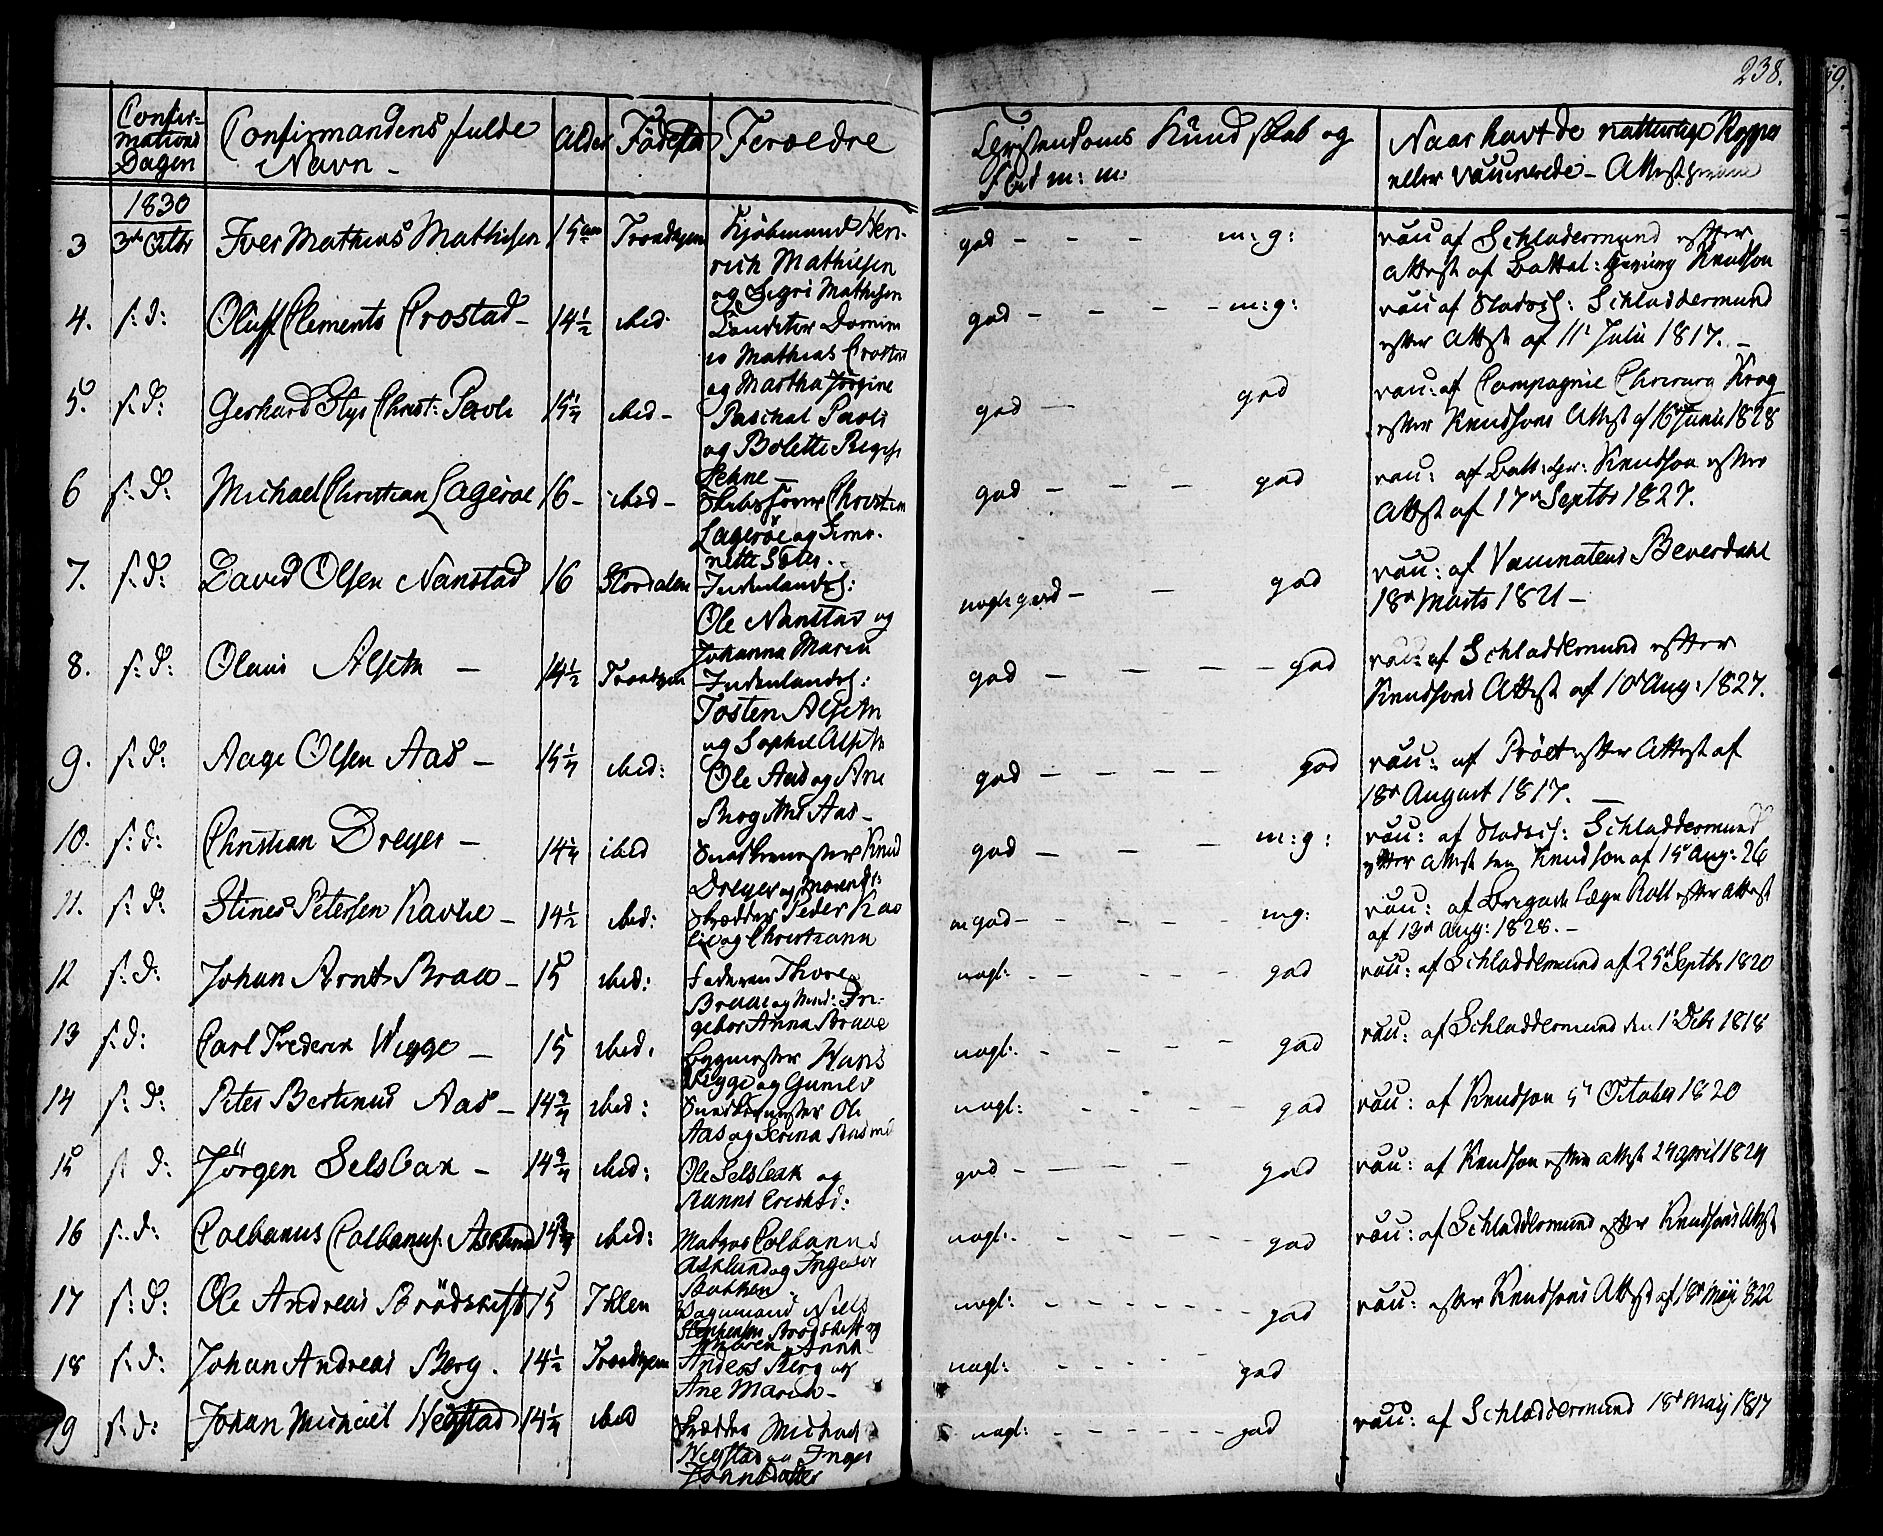 238.
Confir-
mations
Dagen
Confirmandens fulde
Navn -
Alder
Fødested
Foræld­re
Christendoms Kundskab og
Flid m: m:
Naar havt de naturlige Kopper
eller vaccinerede - Attest
1830
3 3die Octbr Iver Mathias Mathiesen 15 aar Trondhjem Kjøbmand Hen-
rich Mathiesen
og Sigri Mathiesen
god - - - m: g:
vacc: af Schladermund efter
Attest af Battal: Chirurg Knudson
4. s: d: Oluff Clements Crostad - 14½ ibid:
Mathias Crostad
og Martha Jörgine
god - - - - m: g:
vacc af Stadsch: Schladdermund
efter Attest af 11t Julii 1817. -
5. s: d: Gerhard Stys Christ: Pavli 15¼ ibid - Paschal Pavli
og Bolette Birgitte
Sehne -
god - god
vacc: af Compagnie Chirurg Krog
efter Knudsons Attest af 16 Junii 1828
6 s: d: Michael Christian Lagerøe 16 - ibid - Skibsfører Christian
Lagerøe og Simo-
nette
god - - - god
vacc: af Batt: Chir: Knudson efter
Attest af 17de Septbr 1827.
7. s: d: David Olsen Nanstad 16 Stordalen Indenlandsk:
Ole Nanstad og
Johanna Maria
nogl: god - - god
vacc: af Vaccinateur Beverdahl
18de Marts 1821 -
8. s: d: Olaus Alseth - 14½ Trondhjem Indenlandsk:
Tosten Alseth
og Sophie Alseth
god - - - - god
vacc: af Schladdermund efter
Knudsons Attest af 10de Aug: 1827.
9. s: d: Aage Olsen Aas - 15¼ ibid: Ole Aas og Ane
Aas -
god - - - - god
vacc: af Pröet efter Attest af
18de August 1817. -
10. s: d: Christian Dreyer - 14¼ ibid Snedkermester Knud
Dreyer og
god - - - m: g:
vacc: af Stadsch: Schladdermund
efter Attest fra Knudson af 15de Aug: 26
11. s: d: Stiner Petersen Kavlie - 14½ ibid: Skrædder Peder Kav
lie og Christiana
m god - - - - mg:
vacc: af Brigade Læge Roll efter Attest
af 13de Aug: 1828. -
12 s: d: Johan Arnt Braae - 15 ibid: Thore
Braae og In-
gebor Anna Braae
nogl: - - - - god
vacc: af Schladdermund af 25de Septbr 1820
13 s: d: Carl Frederik Wigge - 15 ibid: Bygmester Hans
Wigge og Gunild
nogl: - - - - god
vacc: af Schladdermund den 1t Decbr 1818
14 s: d: Peter Bertinus Aas - 14¾ ibid: Snedkermester Ole
Aas og Serina
nogl: - - - - god
vacc: af Knudson 5t October 1820
15 s: d: Jörgen Selsbak - 14¾ ibid: Ole Selsbak og
Erichsd:
god - - - - god
vacc: af Knudson efter Attest 29 April 1824
16 s: d: Colbanus Colbanus: Asklund 14¾ ibid: Matros Colbanus
Asklund og Ingebor
nogl: - - - - - god
vacc: af Schladdermund efter Knudsons Attest
17 s: d: Ole Andreas Brödskift 15 Ihlen Niels
Brödskift og
Anna
nogl: - - - - - god
vacc: efter Knudsons Attest af 18de Maji 1822
18 s: d: Johan Andreas Berg. 14½ Trondhjem Anders Berg og
Ane Maria -
nogl: - - - - - god
19 s: d: Johan Michael Wefstad 14¼ ibid Skrædder Michael
Wefstad og Inger
Johnsdatter
nogl: - - - - - god
vacc: af Schladdermund 18de Maij 1817